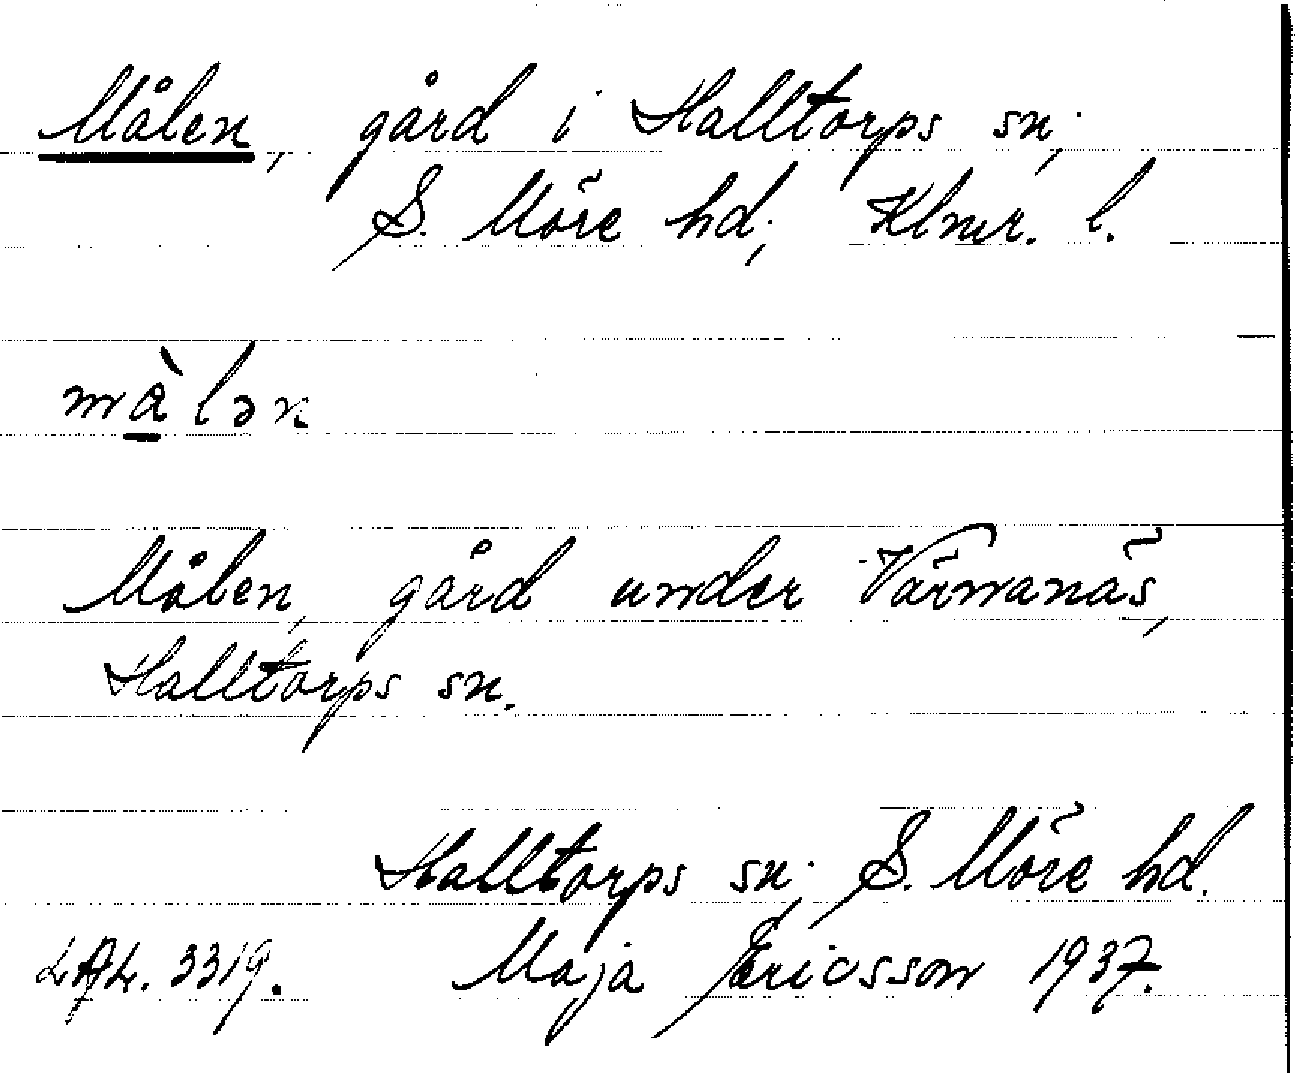 Målen, gård i Halltorps sn;
S. Möre hd; Klmr. l.
màlən
Målen, gård under Värnanäs,
Halltorps sn.
Halltorps sn; S. Möre hd.
LAL. 3319. Maja Ericsson 1937.